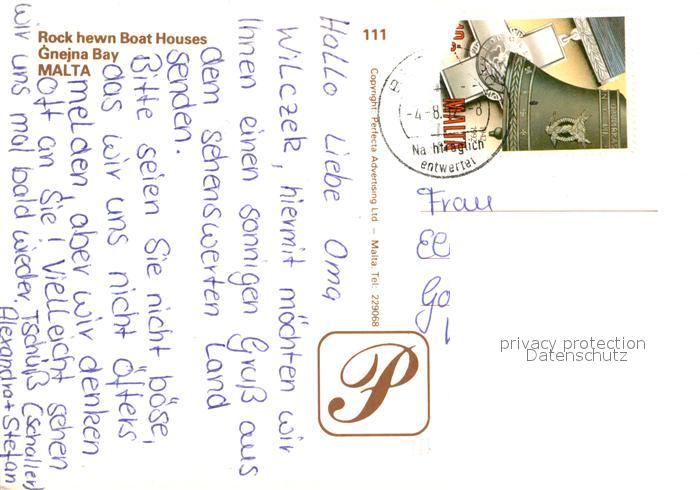 Rock hewn Boat Houses
Ġnejna Bay
MALTA
111
Hallo Liebe Oma
Wilczek, hiermit möchten wir
Ihnen einen sonnigen Gruß aus
dem sehenswerten Land
senden.
Bitte seien Sie nicht böse,
das wir uns nicht öfters
melden, aber wir denken
oft an Sie! Vielleicht sehen
wir uns mal bald wieder. Tschüß (Schaller)
Alexandra + Stefan
Copyright Perfecta Advertising Ltd — Malta. Tel: 229068
P
MALTA
-4-8.
Nachträglich
entwertet
Frau
privacy protection
Datenschutz